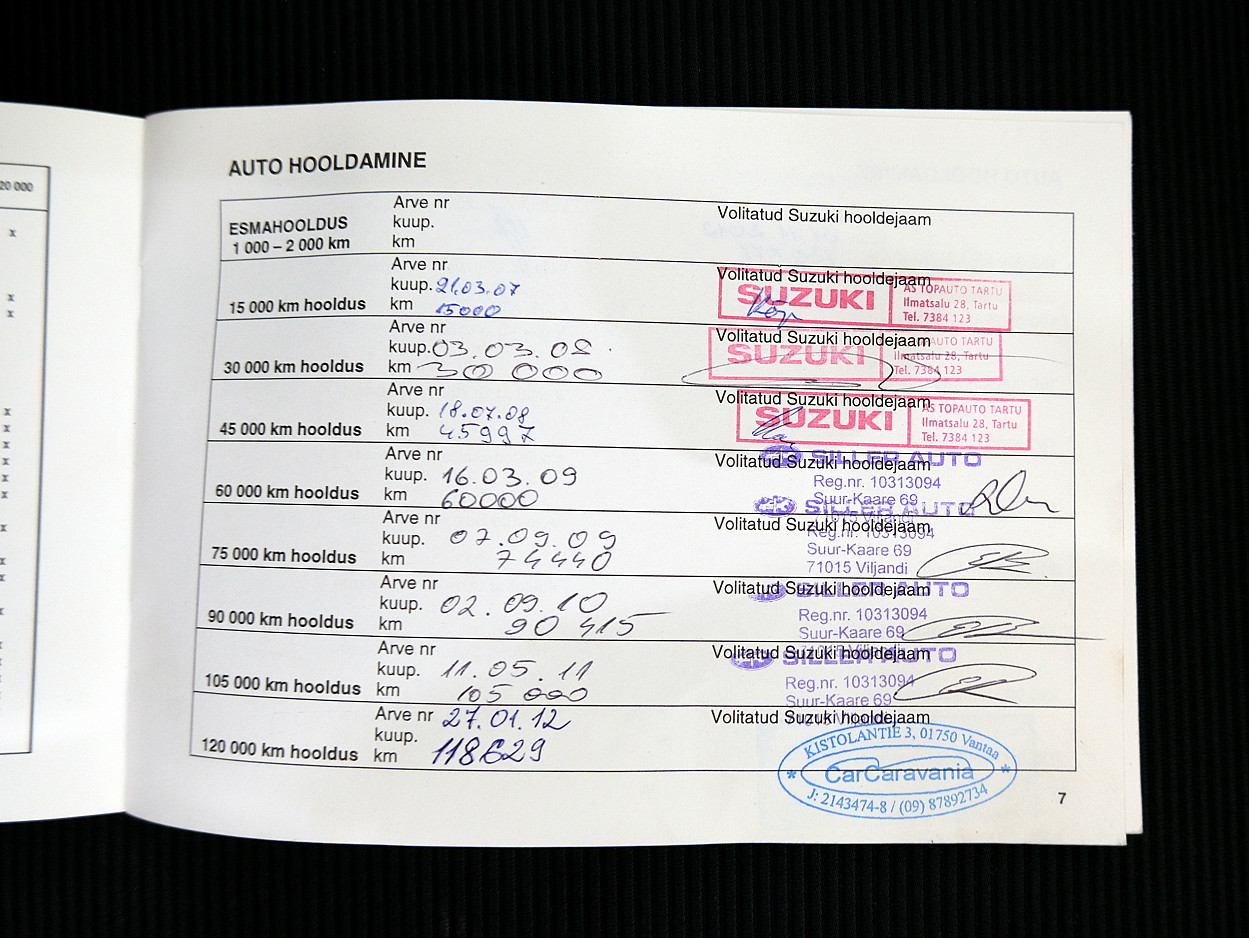 20 000
x
x
x
x
x
x
x
x
x
x
x
x
AUTO HOOLDAMINE
ESMAHOOLDUS
1 000 – 2 000 km
Arve nr
kuup.
km
Volitatud Suzuki hooldejaam
15 000 km hooldus
Arve nr
kuup. 21.03.07
km 15000
Volitatud Suzuki hooldejaam
SUZUKI
AS TOPAUTO TARTU
Ilmatsalu 28, Tartu
Tel. 7384 123
30 000 km hooldus
Arve nr
kuup. 03.03.08.
km 30 000
Volitatud Suzuki hooldejaam
SUZUKI
AS TOPAUTO TARTU
Ilmatsalu 28, Tartu
Tel. 7384 123
45 000 km hooldus
Arve nr
kuup. 18.07.08
km 45997
Volitatud Suzuki hooldejaam
SUZUKI
AS TOPAUTO TARTU
Ilmatsalu 28, Tartu
Tel. 7384 123
60 000 km hooldus
Arve nr
kuup. 16.03.09
km 60000
Volitatud Suzuki hooldejaam
SILLER AUTO
Reg.nr. 10313094
Suur-Kaare 69
71015 Viljandi
75 000 km hooldus
Arve nr
kuup. 07.09.09
km 74440
Volitatud Suzuki hooldejaam
SILLER AUTO
Reg.nr. 10313094
Suur-Kaare 69
71015 Viljandi
90 000 km hooldus
Arve nr
kuup. 02.09.10
km 90 415
Volitatud Suzuki hooldejaam
SILLER AUTO
Reg.nr. 10313094
Suur-Kaare 69
71015 Viljandi
105 000 km hooldus
Arve nr
kuup. 11.05.11
km 105 000
Volitatud Suzuki hooldejaam
SILLER AUTO
Reg.nr. 10313094
Suur-Kaare 69
71015 Viljandi
120 000 km hooldus
Arve nr 27.01.12
kuup.
km 118629
Volitatud Suzuki hooldejaam
KISTOLANTIE 3, 01750 Vantaa
* CarCaravania *
J: 2143474-8 / (09) 87892734
7